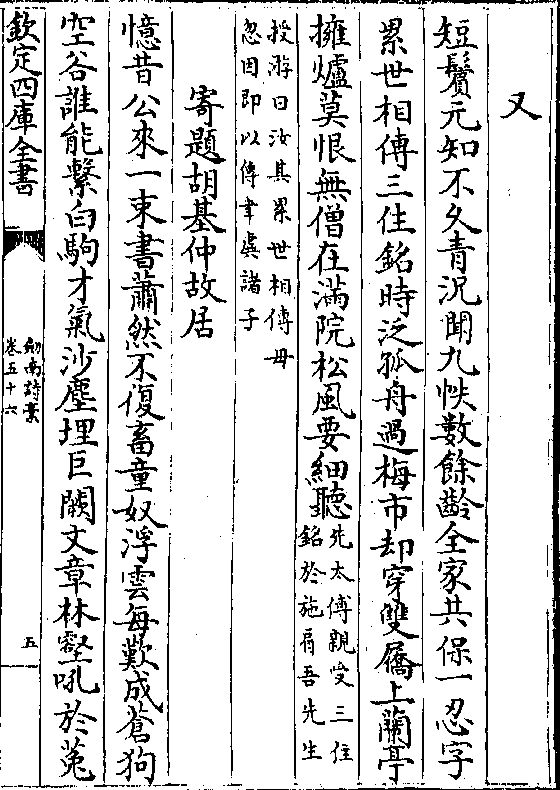 又
短鬢元知不久青況聞九帙數餘齡全家共保一忍字
累世相傳三住銘時泛孤舟過梅市却穿雙屩上蘭亭
擁爐莫恨無僧在滿院松風要細聽先太傅親受三住
銘於施肩吾先生
授游曰汝其累世相傳毋
忽因即以傳聿虞諸子
寄題胡基仲故居
憶昔公來一束書蕭然不復畜童奴浮雲每歎成蒼狗
空谷誰能縶白駒才氣沙塵埋巨闕文章林壑吼於菟
欽定四庫全書
劒南詩藁
卷五十六
五